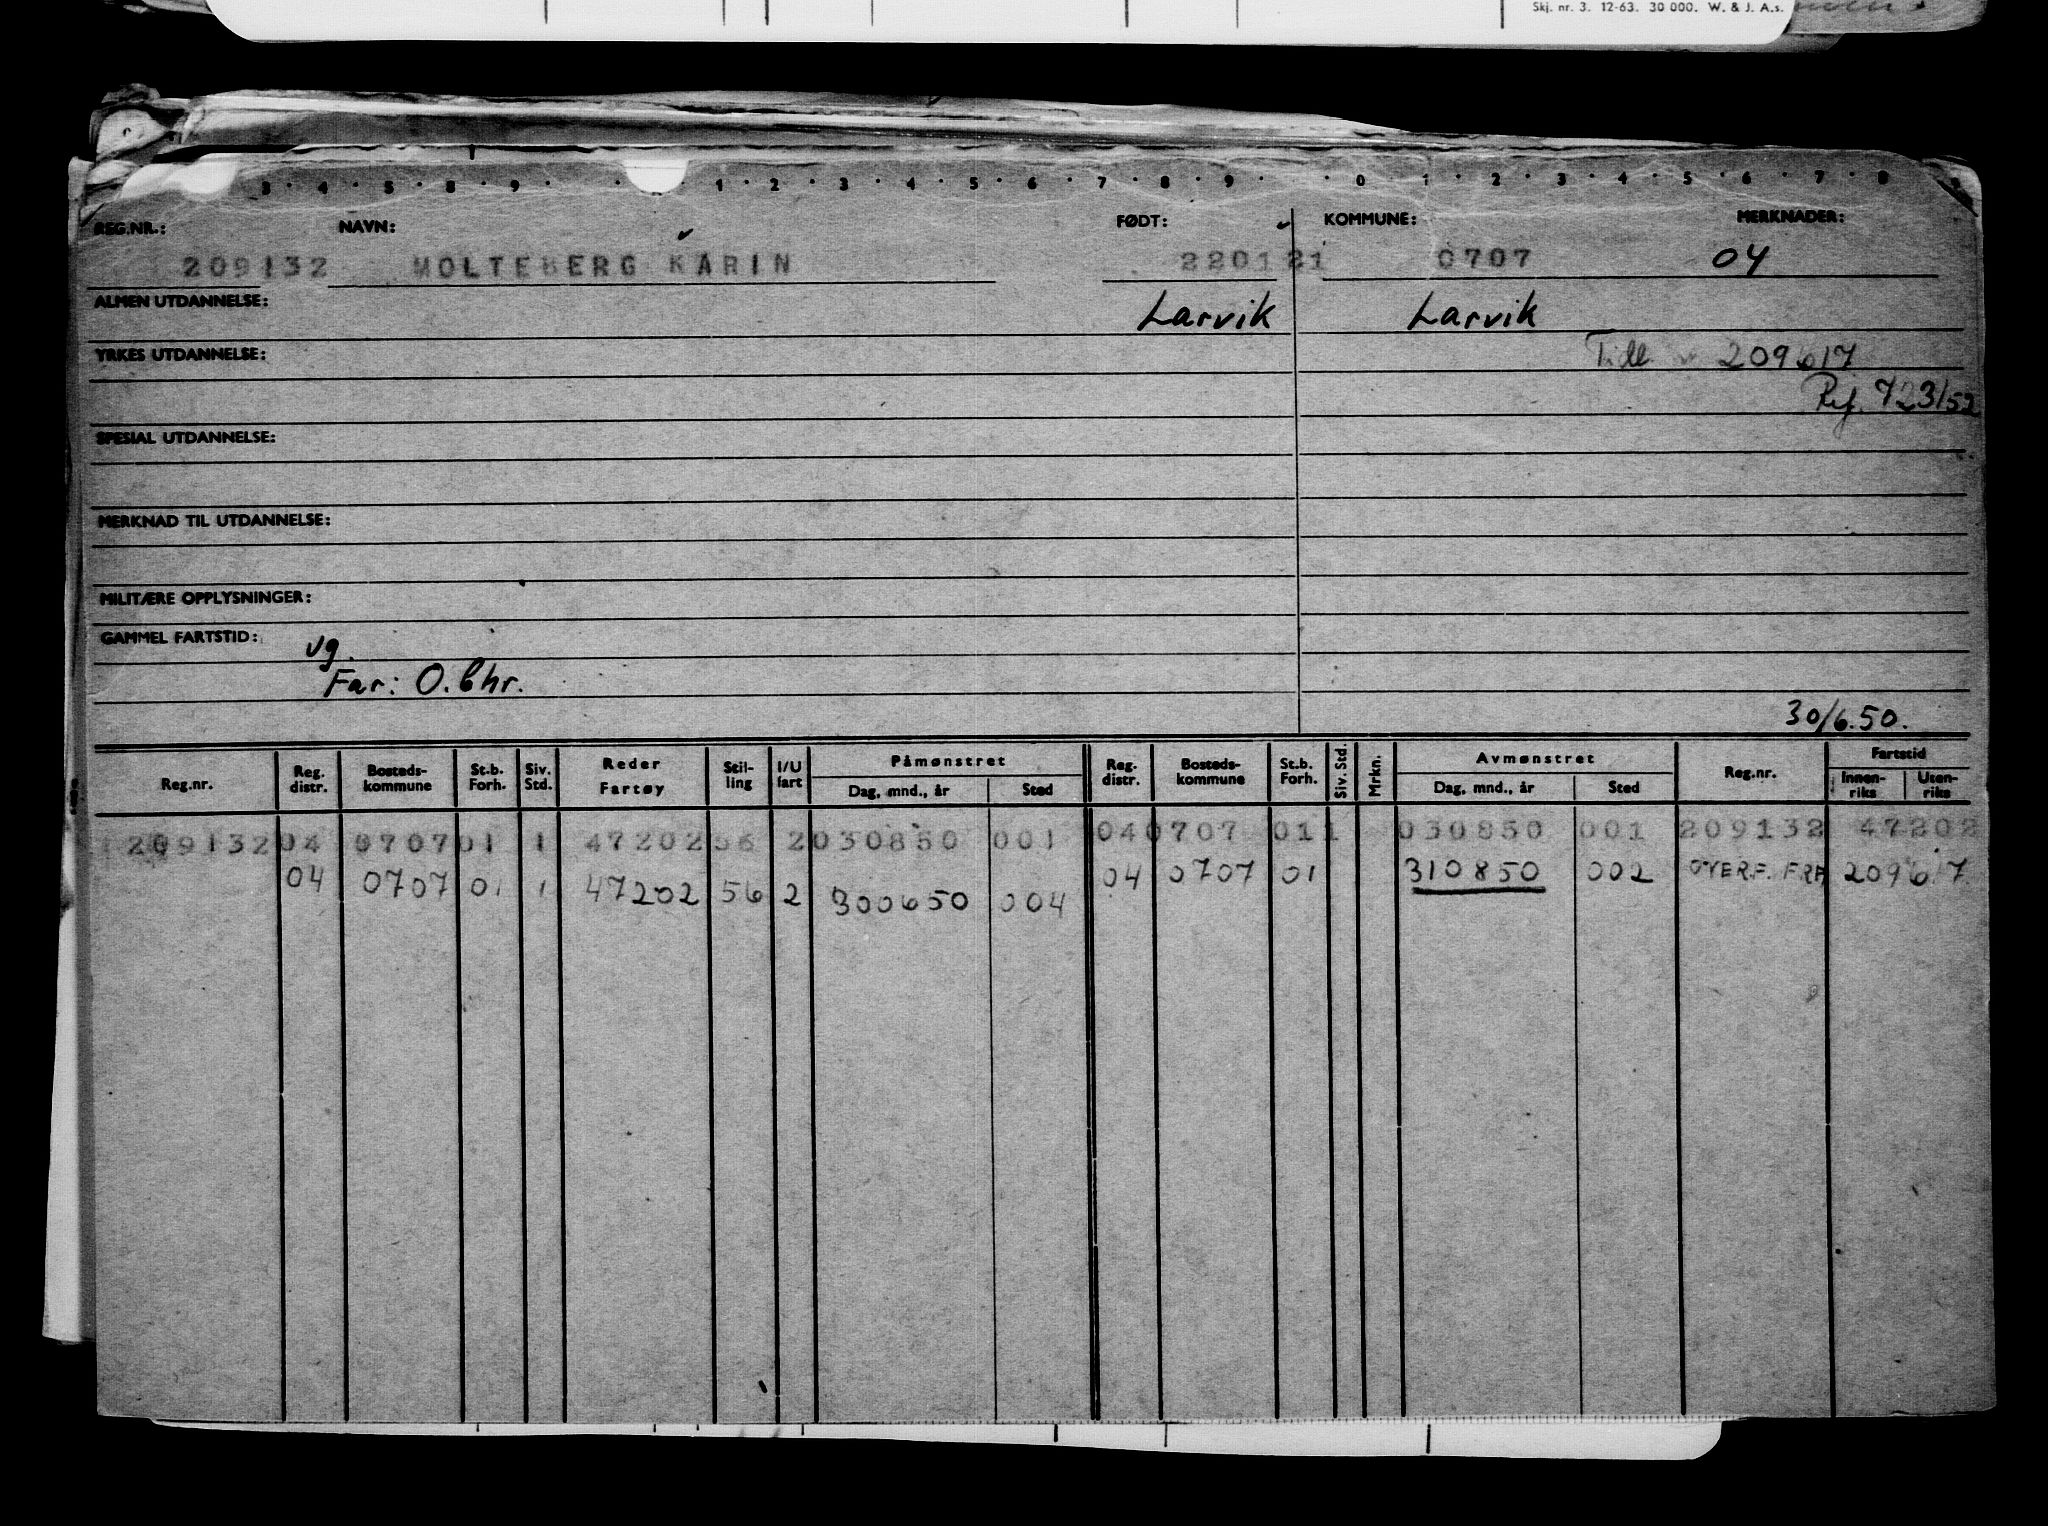 Skj. nr. 3. 12-63. 30 000. W. & J. A.s.
3 · 4 · 5 · 8 · 9 · · 1 · 2 · 3 · 4 · 5 · 6 · 7 · 8 · 9 · · 0 · 1 · 2 · 3 · 4 · 5 · 6 · 7 · 8
REG.NR.: NAVN: FØDT: KOMMUNE: MERKNADER:
209132 MOLTEBERG KARIN 220121 0707 04
ALMEN UTDANNELSE: Larvik Larvik
YRKES UTDANNELSE: Tidl. 209617
Ref. 723/52
SPESIAL UTDANNELSE:
MERKNAD TIL UTDANNELSE:
MILITÆRE OPPLYSNINGER:
GAMMEL FARTSTID:
vg.
Far: O. Chr.
30/6.50.
Reg.nr. Reg. distr. Bosteds-kommune St.b. Forh. Siv. Std. Reder Fartøy Stil-ling I/U fart Påmønstret Dag, mnd., år Sted Reg. distr. Bosteds-kommune St.b. Forh. Siv. Std. Mrkn. Avmønstret Dag, mnd., år Sted Reg.nr. Fartstid Innen-riks Uten-riks
209132 04 0707 01 1 47202 56 2 030850 001 04 0707 01 1 030850 001 209132 47202
04 0707 01 1 47202 56 2 300650 004 04 0707 01 310850 002 OVERF. FRA 209617